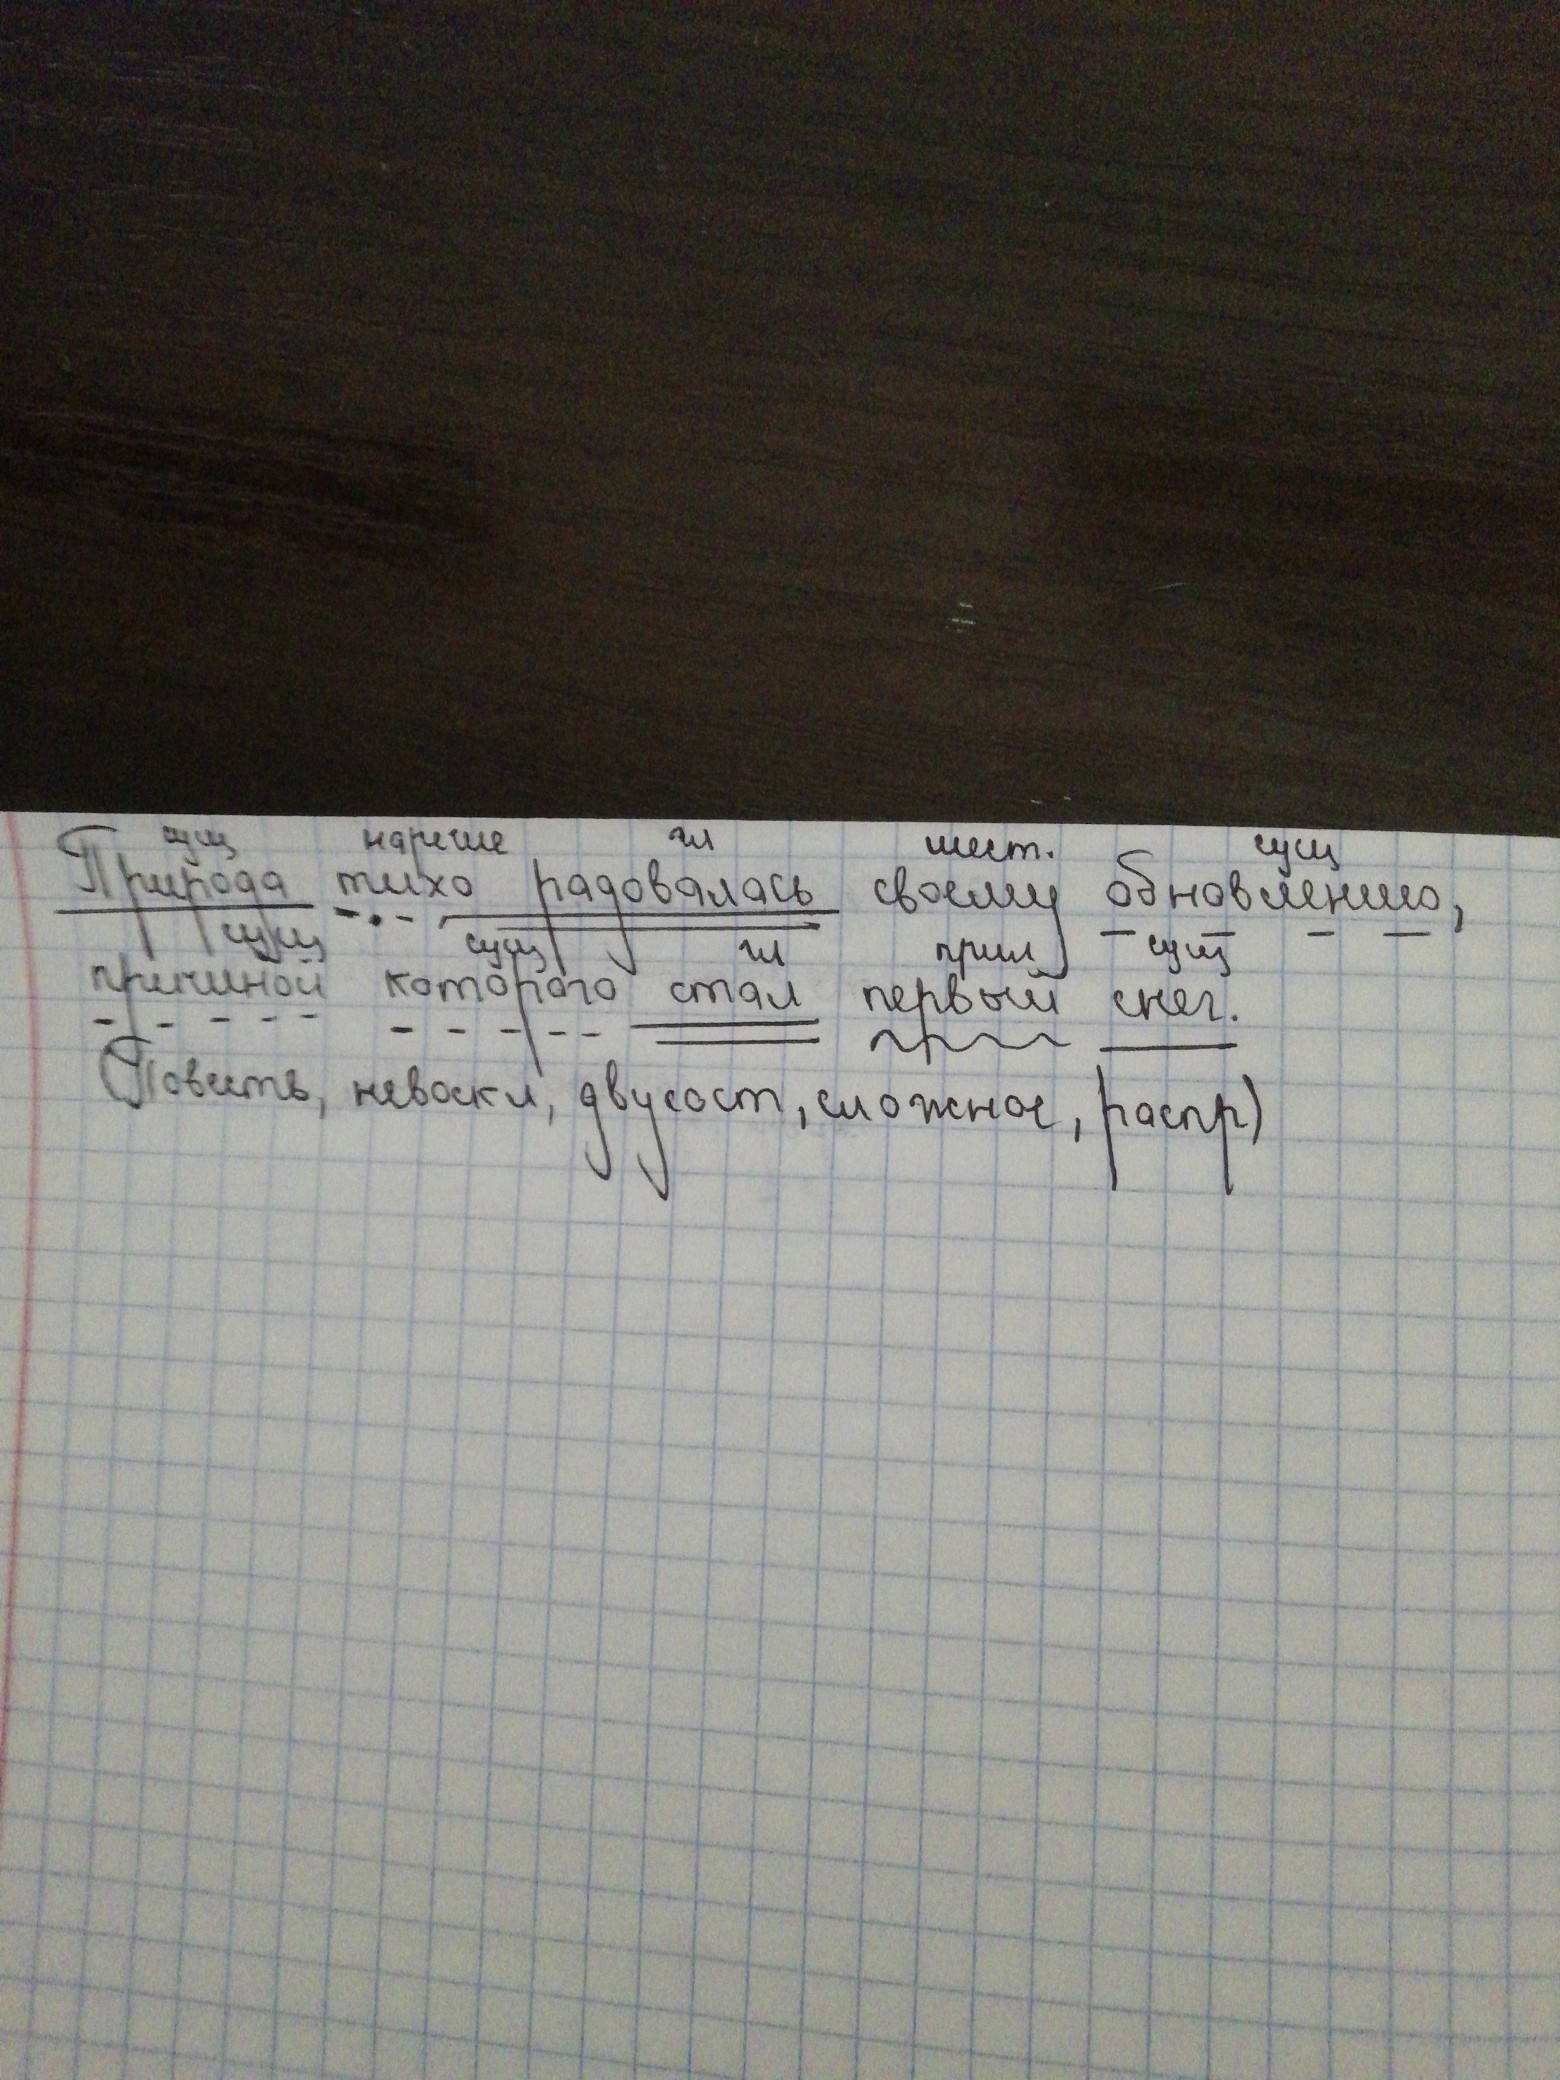 сущ наречие гл мест. сущ
Природа тихо радовалась своему обновлению,
сущ сущ гл прил сущ
причиной которого стал первый снег.
(Повеств, невоскл, двусост, сложное, распр)